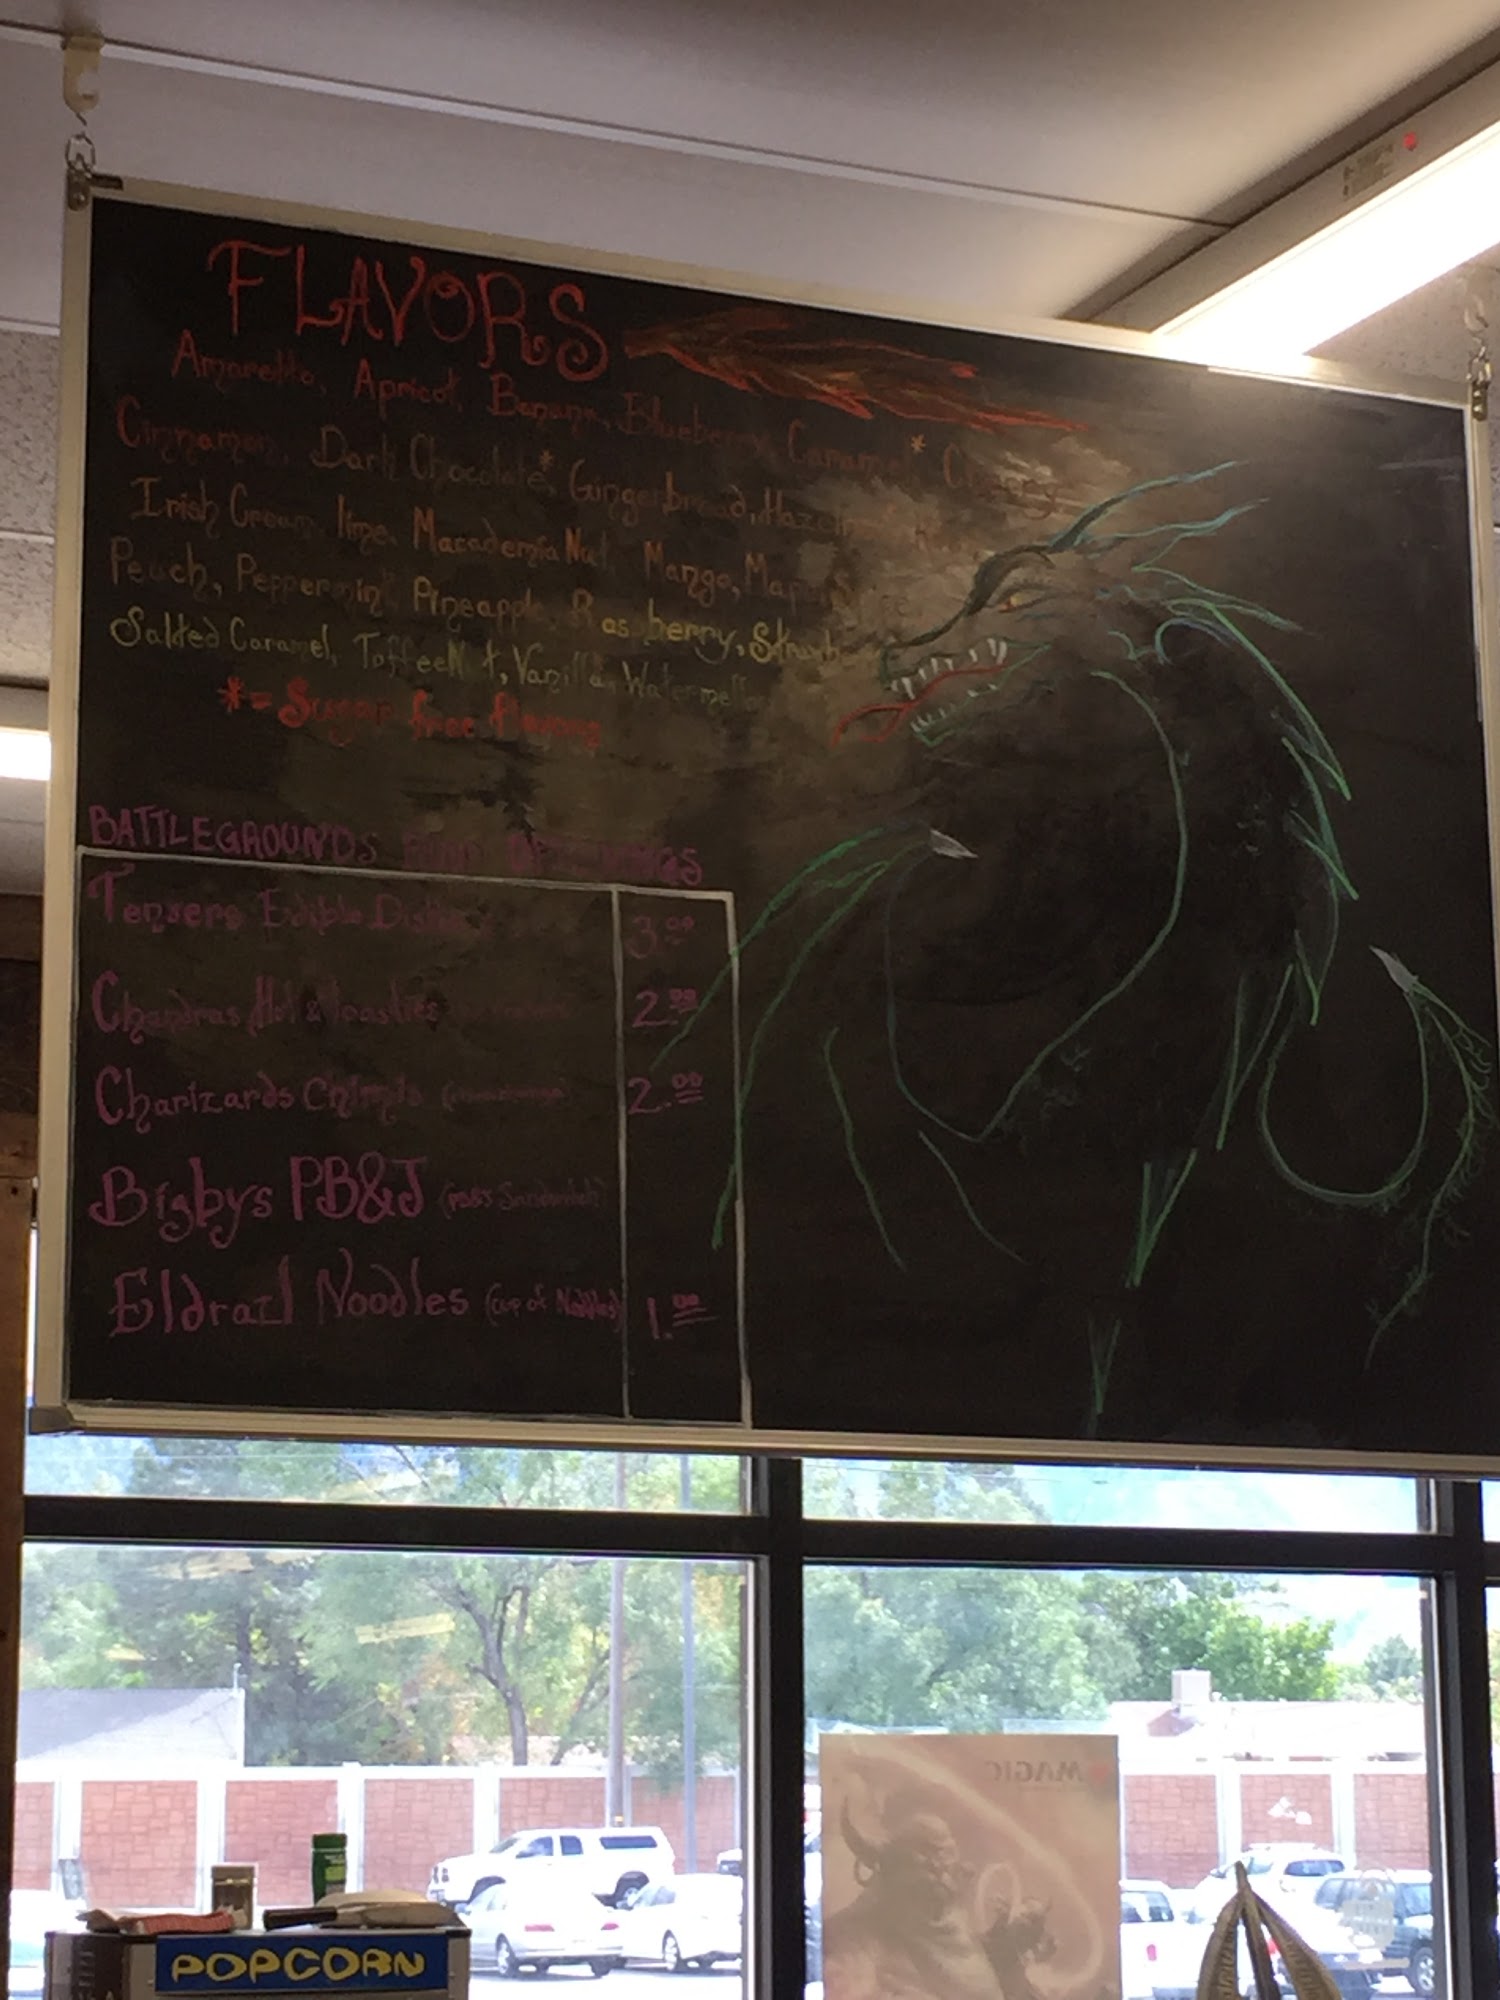 FLAVORS
Amaretto, Apricot, Banana, Blueberry, Caramel* Cherry,
Cinnamon, Dark Chocolate*, Gingerbread,
Irish Cream, lime, Macademia Nut, Mango,
Peach, Peppermint, Pineapple, Raspberry,
Salted Caramel, Toffee Nut, Vanilla,
*= Sugar free flavors
BATTLEGROUNDS
Tensers Edible 3.00
Chandras Hot & Toasties 2.00
Charizards 2.00
Bigbys PB&J (PB&J Sandwhich)
Eldrazl Noodles (Cup of Noodles) 1.00
MAGIC
POPCORN